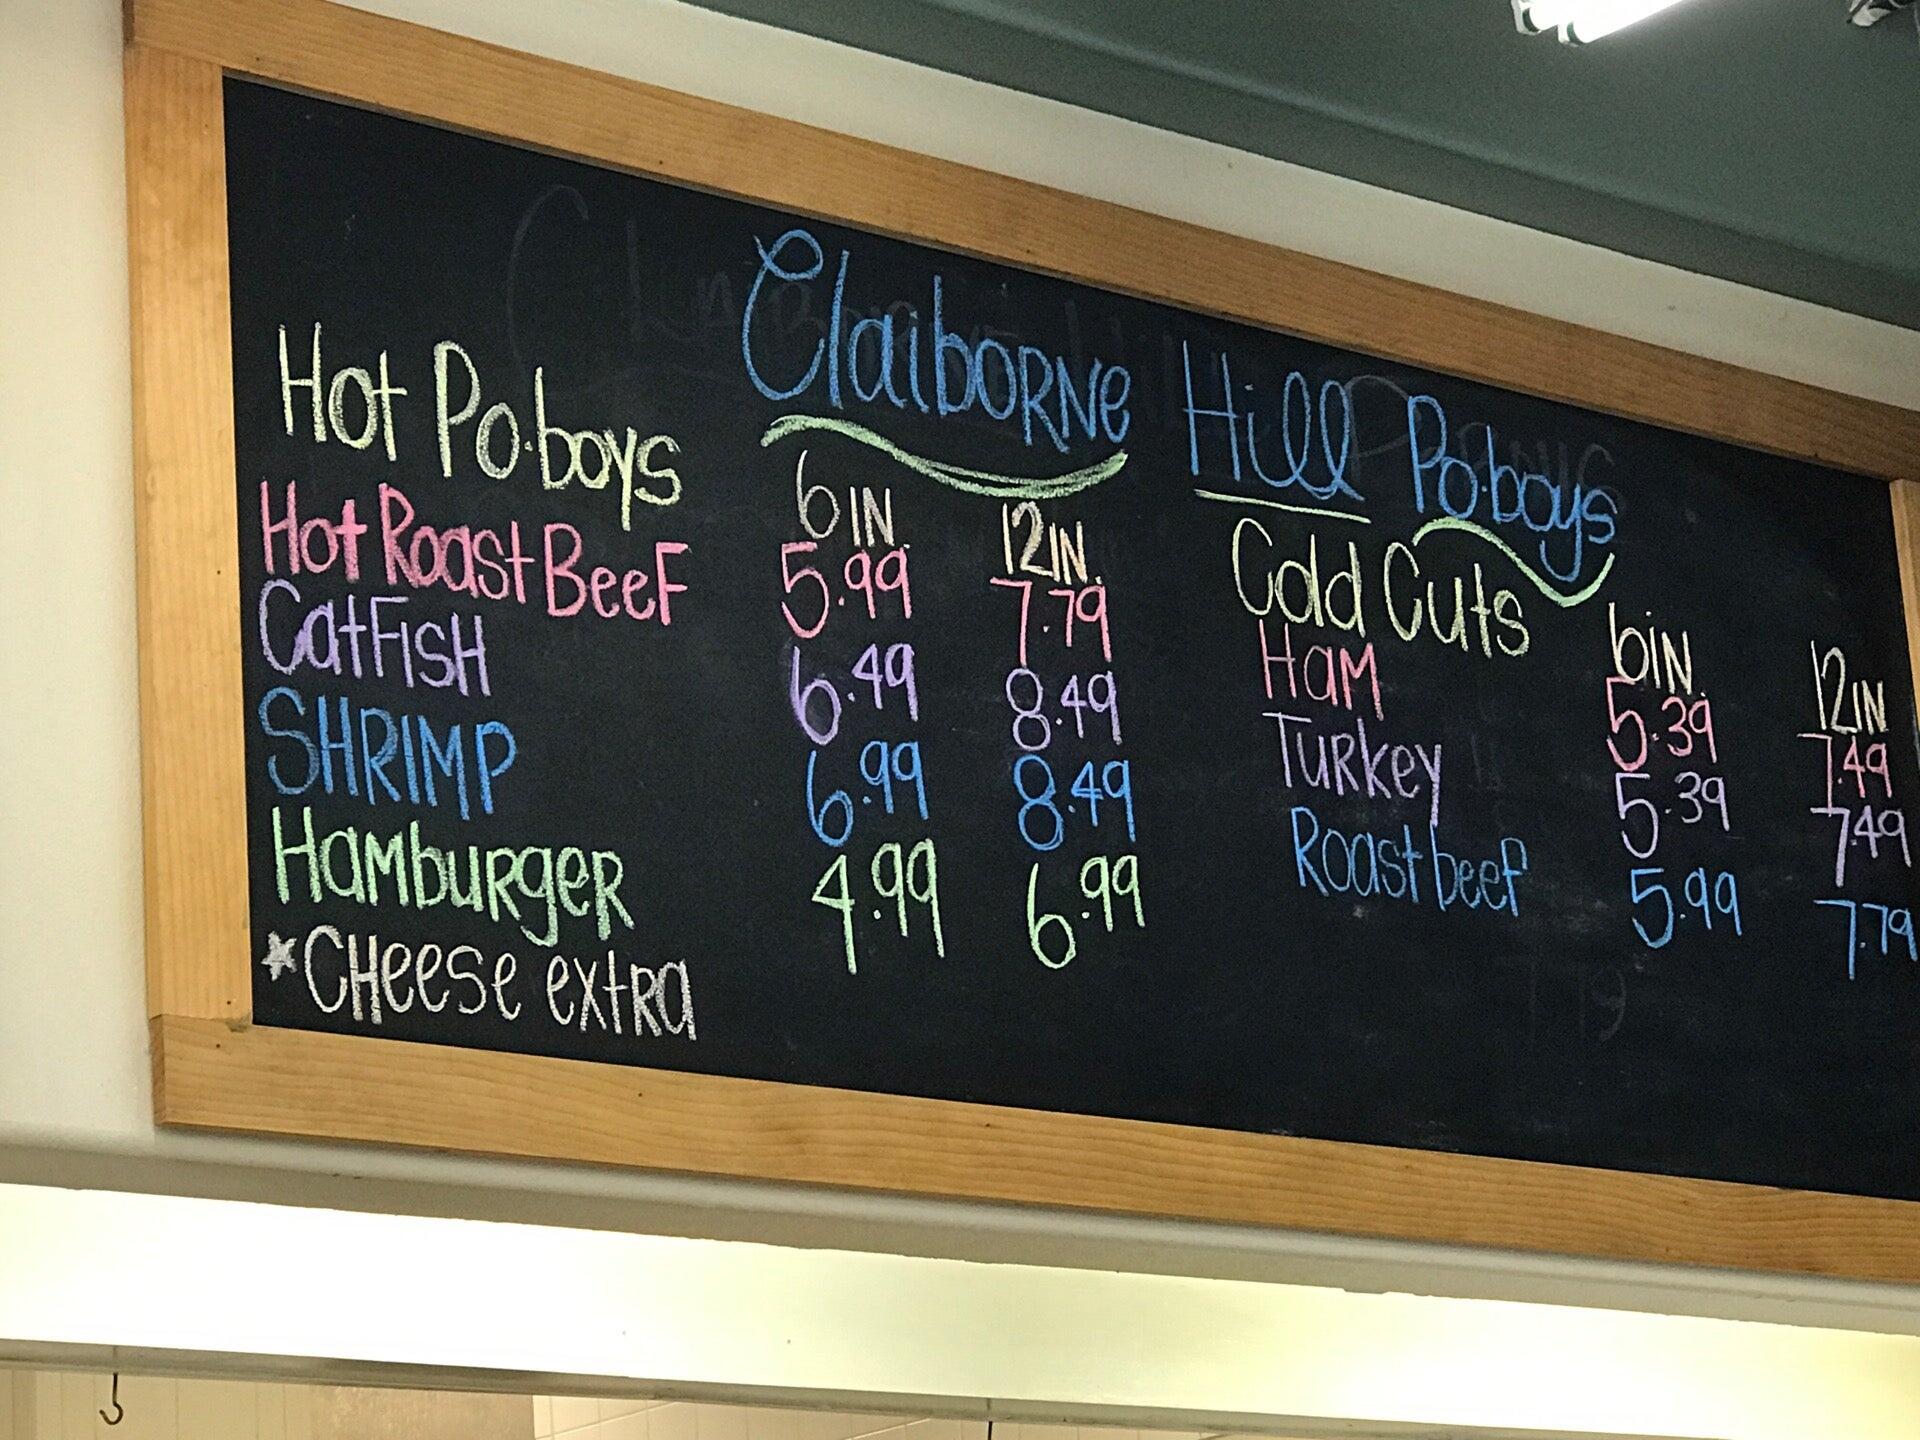 Claiborne Hill Po.boys
Hot Po.boys 6 IN. 12 IN.
Hot Roast Beef 5.99 7.79
CatFisH 6.49 8.49
SHRIMP 6.99 8.49
HamburgeR 4.99 6.99
*CHeese extRa
Cold Cuts 6IN. 12IN.
Ham 5.39 7.49
TuRkey 5.39 7.49
Roast beef 5.99 7.79